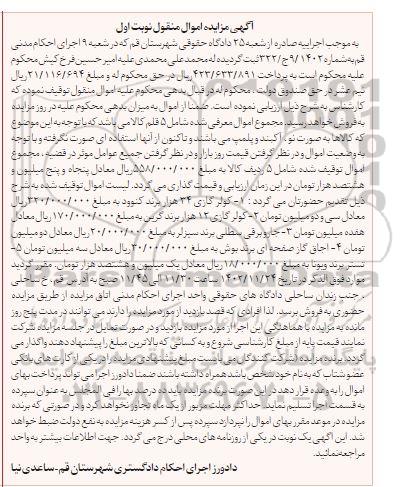 آگهی مزایده اموال منقول نوبت اول
به موجب اجراییه صادره از شعبه ۲۵ دادگاه حقوقی شهرستان قم که در شعبه ۹ اجرای احکام مدنی
قم به شماره ۱۴۰۲/۹ ج/۳۲۲ ثبت گردیده له محمد علی محمدی علیه امیر حسین فرخ کیش محکوم
علیه محکوم است به پرداخت ۴۲۳/۶۳۳/۸۹۱ ریال در حق محکوم له و مبلغ ۲۱/۱۱۶/۶۹۴ ریال
نیم عشر در حق صندوق دولت. محکوم له در قبال بدهی محکوم علیه اموال منقول توقیف نموده که
کارشناس به شرح ذیل ارزیابی نموده است. ضمنا از اموال به میزان بدهی محکوم علیه در روز مزایده
به فروش خواهد رسید. مجموع اموال معرفی شده شامل ۵ قلم کالا می باشد که با توجه به این موضوع
که کالاها به صورت نو، آکبند و پلمپ می باشند و تاکنون از آنها استفاده ای صورت نگرفته و با توجه
به وضعیت اموال و در نظر گرفتن قیمت روز بازار و در نظر گرفتن جمیع عوامل موثر در قضیه، مجموع
اموال توقیف شده شامل ۵ ردیف کالا به مبلغ ۵۵۸/۰۰۰/۰۰۰ ریال معادل پنجاه و پنج میلیون و
هشتصد هزار تومان در این زمان ارزیابی و قیمت گذاری می گردد. لیست اموال توقیف شده به شرح
ذیل تقدیم حضورتان می گردد: ۱- کولر گازی ۳۴ هزار برند کنوود به مبلغ ۳۲۰/۰۰۰/۰۰۰ ریال
معادل سی و دو میلیون تومان ۲- کولر گازی ۱۲ هزار برند گرین به مبلغ ۱۷۰/۰۰۰/۰۰۰ ریال معادل
هفده میلیون تومان ۳- جاروبرقی سطلی برند سیلزر به مبلغ ۲۰/۰۰۰/۰۰۰ ریال معادل دو میلیون
تومان ۴- اجاق گاز صفحه ای برند بوش به مبلغ ۳۰/۰۰۰/۰۰۰ ریال معادل سه میلیون تومان ۵-
تستر برند ویونا به مبلغ ۱۸/۰۰۰/۰۰۰ ریال معادل یک میلیون و هشتصد هزار تومان. مقرر گردید
موارد فوق الذکر در تاریخ ۱۴۰۲/۱۱/۲۴ ساعت ۱۱/۳۰ الی ۱۱/۴۵ صبح به آدرس قم، خ ساحلی
، جنب زندان ساحلی دادگاه های حقوقی واحد اجرای احکام مدنی اتاق مزایده از طریق مزایده
حضوری به فروش برسد. لذا افرادی که قصد بازدید از مورد مزایده را دارند می توانند در مدت پنج روز
مانده به مزایده با هماهنگی این اجرا از مورد مزایده بازدید و در صورت تمایل در جلسه مزایده شرکت
نمایند قیمت پایه از مبلغ کارشناسی شروع و به کسانی که بالاترین مبلغ را پیشنهاد دهند واگذار می
گردد. برنده مزایده (شرکت کنندگان می بایست مبلغ پیشنهادی مزایده را در یکی از کارت های بانکی
عضو شتاب که به نام خود شخص باشد همراه داشته باشند ضمنا دادورز اجرا می تواند پرداخت بهای
اموال را به وعده قرار دهد در این صورت برنده مزایده باید ده درصد بها را فی المجلس به عنوان سپرده
به قسمت اجرا تسلیم نماید. حداکثر مهلت مزبور از یک ماه تجاوز نخواهد کرد و در صورتی که برنده
مزایده در موعد مقرر بهای اموال را نپردازد سپرده پس از کسر هزینه مزایده به نفع دولت ضبط خواهد
شد. این آگهی یک نوبت در یکی از روزنامه های محلی درج می گردد. جهت اطلاعات بیشتر به واحد
مراجعه نمائید.
دادورز اجرای احکام دادگستری شهرستان قم - ساعدی نیا